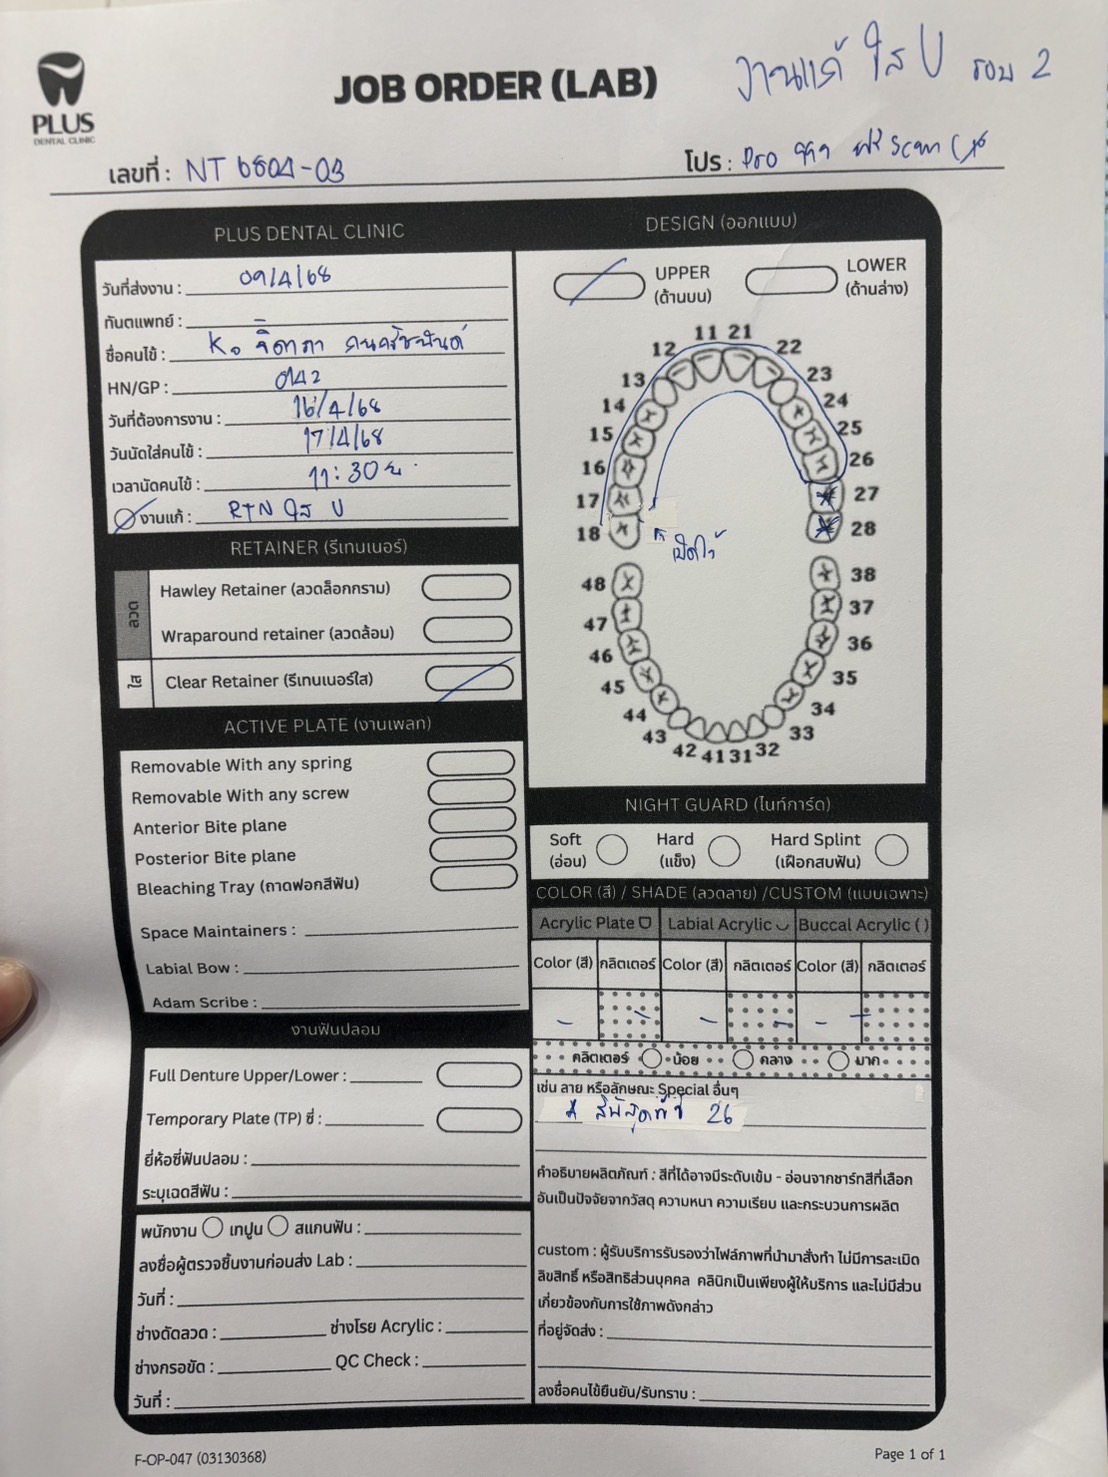 งานแก้ ใส U รอบ 2
PLUS
DENTAL CLINIC
JOB ORDER (LAB)
เลขที่ : NT 6804-03
โปร : Pro ฟรี Scan
PLUS DENTAL CLINIC
วันที่ส่งงาน : 09/4/68
ทันตแพทย์ :
ชื่อคนไข้ : K.
HN/GP : 042
วันที่ต้องการงาน : 16/4/68
วันนัดใส่คนไข้ : 17/4/68
เวลานัดคนไข้ : 11:30 น.
งานแก้ : RTN ใส U
RETAINER (รีเทนเนอร์)
ลวด
Hawley Retainer (ลวดล็อกกราม)
Wraparound retainer (ลวดล้อม)
ใส
Clear Retainer (รีเทนเนอร์ใส)
ACTIVE PLATE (งานเพลท)
Removable With any spring
Removable With any screw
Anterior Bite plane
Posterior Bite plane
Bleaching Tray (ถาดฟอกสีฟัน)
Space Maintainers :
Labial Bow :
Adam Scribe :
งานฟันปลอม
Full Denture Upper/Lower :
Temporary Plate (TP) ซี่ :
ยี่ห้อซี่ฟันปลอม :
ระบุเฉดสีฟัน :
พนักงาน เทปูน สแกนฟัน :
ลงชื่อผู้ตรวจชิ้นงานก่อนส่ง Lab :
วันที่ :
ช่างดัดลวด : ช่างโรย Acrylic :
ช่างกรอขัด : QC Check :
วันที่ :
DESIGN (ออกแบบ)
UPPER
(ด้านบน)
LOWER
(ด้านล่าง)
11 21
12 22
13 23
14 24
15 25
16 26
17 27
18 28
เปิดไว้
48 38
47 37
46 36
45 35
44 34
43 33
42 41 31 32
NIGHT GUARD (ไนท์การ์ด)
Soft
(อ่อน)
Hard
(แข็ง)
Hard Splint
(เฝือกสบฟัน)
COLOR (สี) / SHADE (ลวดลาย) /CUSTOM (แบบเฉพาะ)
Acrylic Plate Labial Acrylic Buccal Acrylic ( )
Color (สี) กลิตเตอร์ Color (สี) กลิตเตอร์ Color (สี) กลิตเตอร์
- - - - - -
กลิตเตอร์ น้อย กลาง มาก
เช่น ลาย หรือลักษณะ Special อื่นๆ
สิ้นสุดที่ซี่ 26
คำอธิบายผลิตภัณฑ์ : สีที่ได้อาจมีระดับเข้ม - อ่อนจากชาร์ทสีที่เลือก
อันเป็นปัจจัยจากวัสดุ ความหนา ความเรียบ และกระบวนการผลิต
custom : ผู้รับบริการรับรองว่าไฟล์ภาพที่นำมาสั่งทำ ไม่มีการละเมิด
ลิขสิทธิ์ หรือสิทธิส่วนบุคคล คลินิกเป็นเพียงผู้ให้บริการ และไม่มีส่วน
เกี่ยวข้องกับการใช้ภาพดังกล่าว
ที่อยู่จัดส่ง :
ลงชื่อคนไข้ยืนยัน/รับทราบ :
F-OP-047 (03130368)
Page 1 of 1